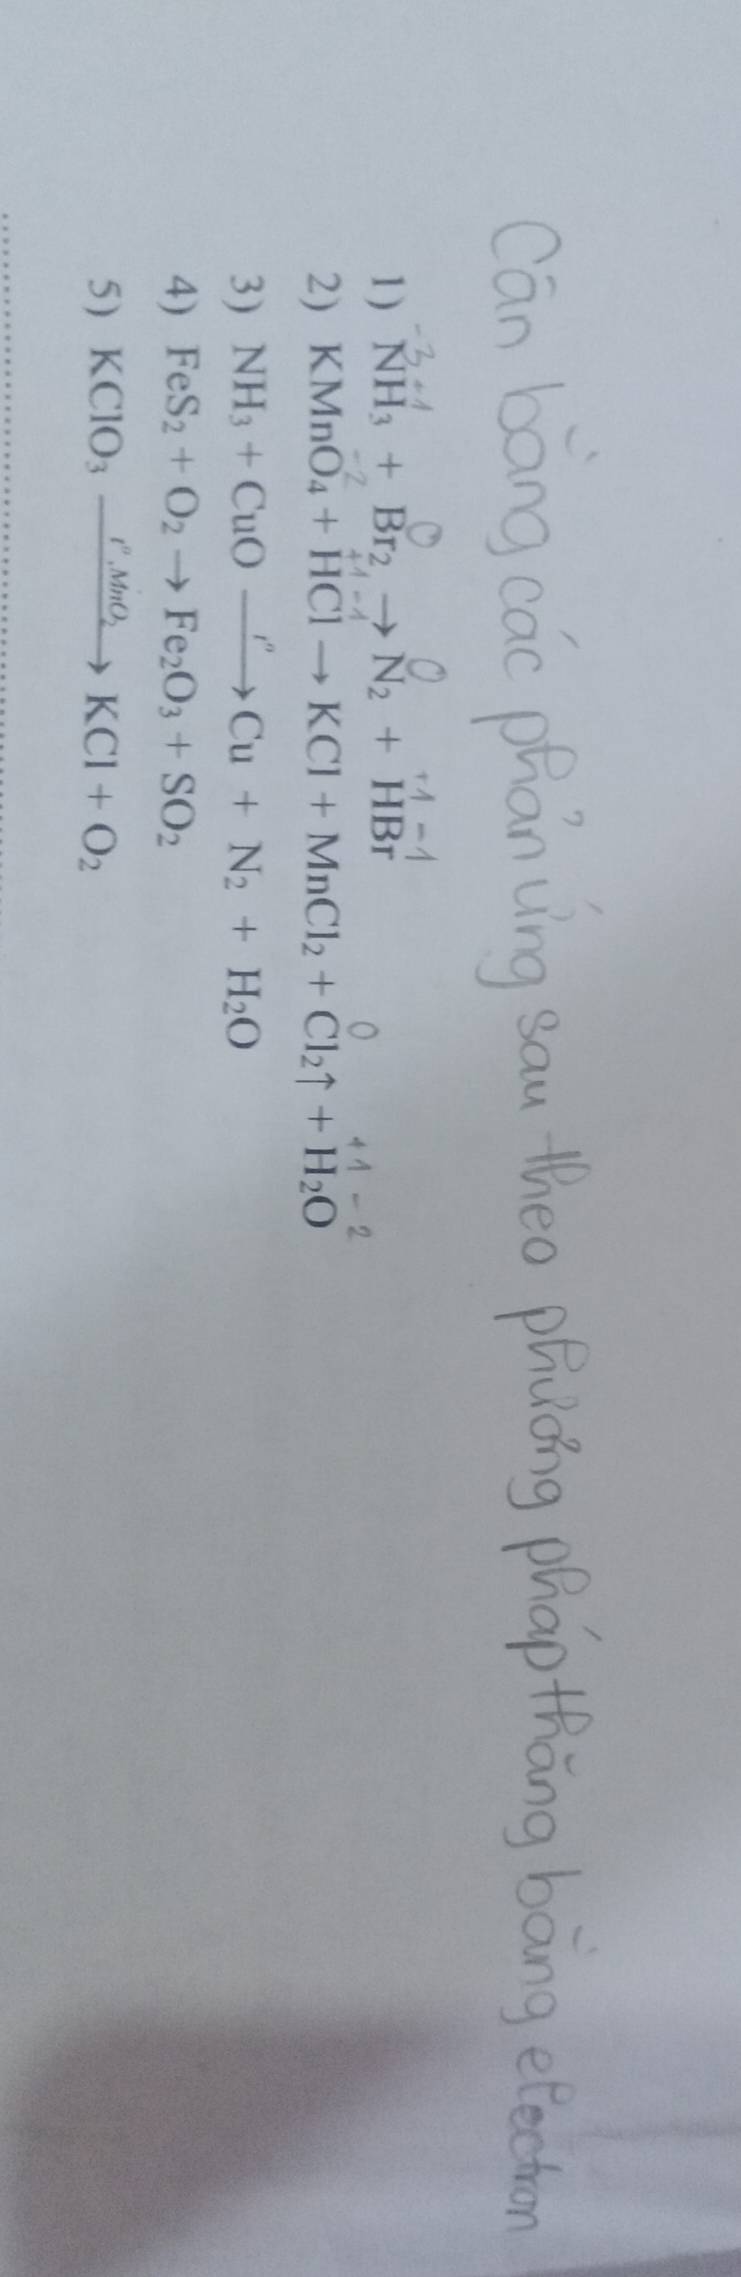 Cân bằng các phản ứng sau theo phương pháp thăng bằng electron
-3 +1 0 0 +1 -1
1) NH₃ + Br₂ → N₂ + HBr
-2 +1 -1 0 +1 -2
2) KMnO₄ + HCl → KCl + MnCl₂ + Cl₂↑ + H₂O
3) NH₃ + CuO —t°→ Cu + N₂ + H₂O
4) FeS₂ + O₂ → Fe₂O₃ + SO₂
5) KClO₃ —t°, MnO₂→ KCl + O₂